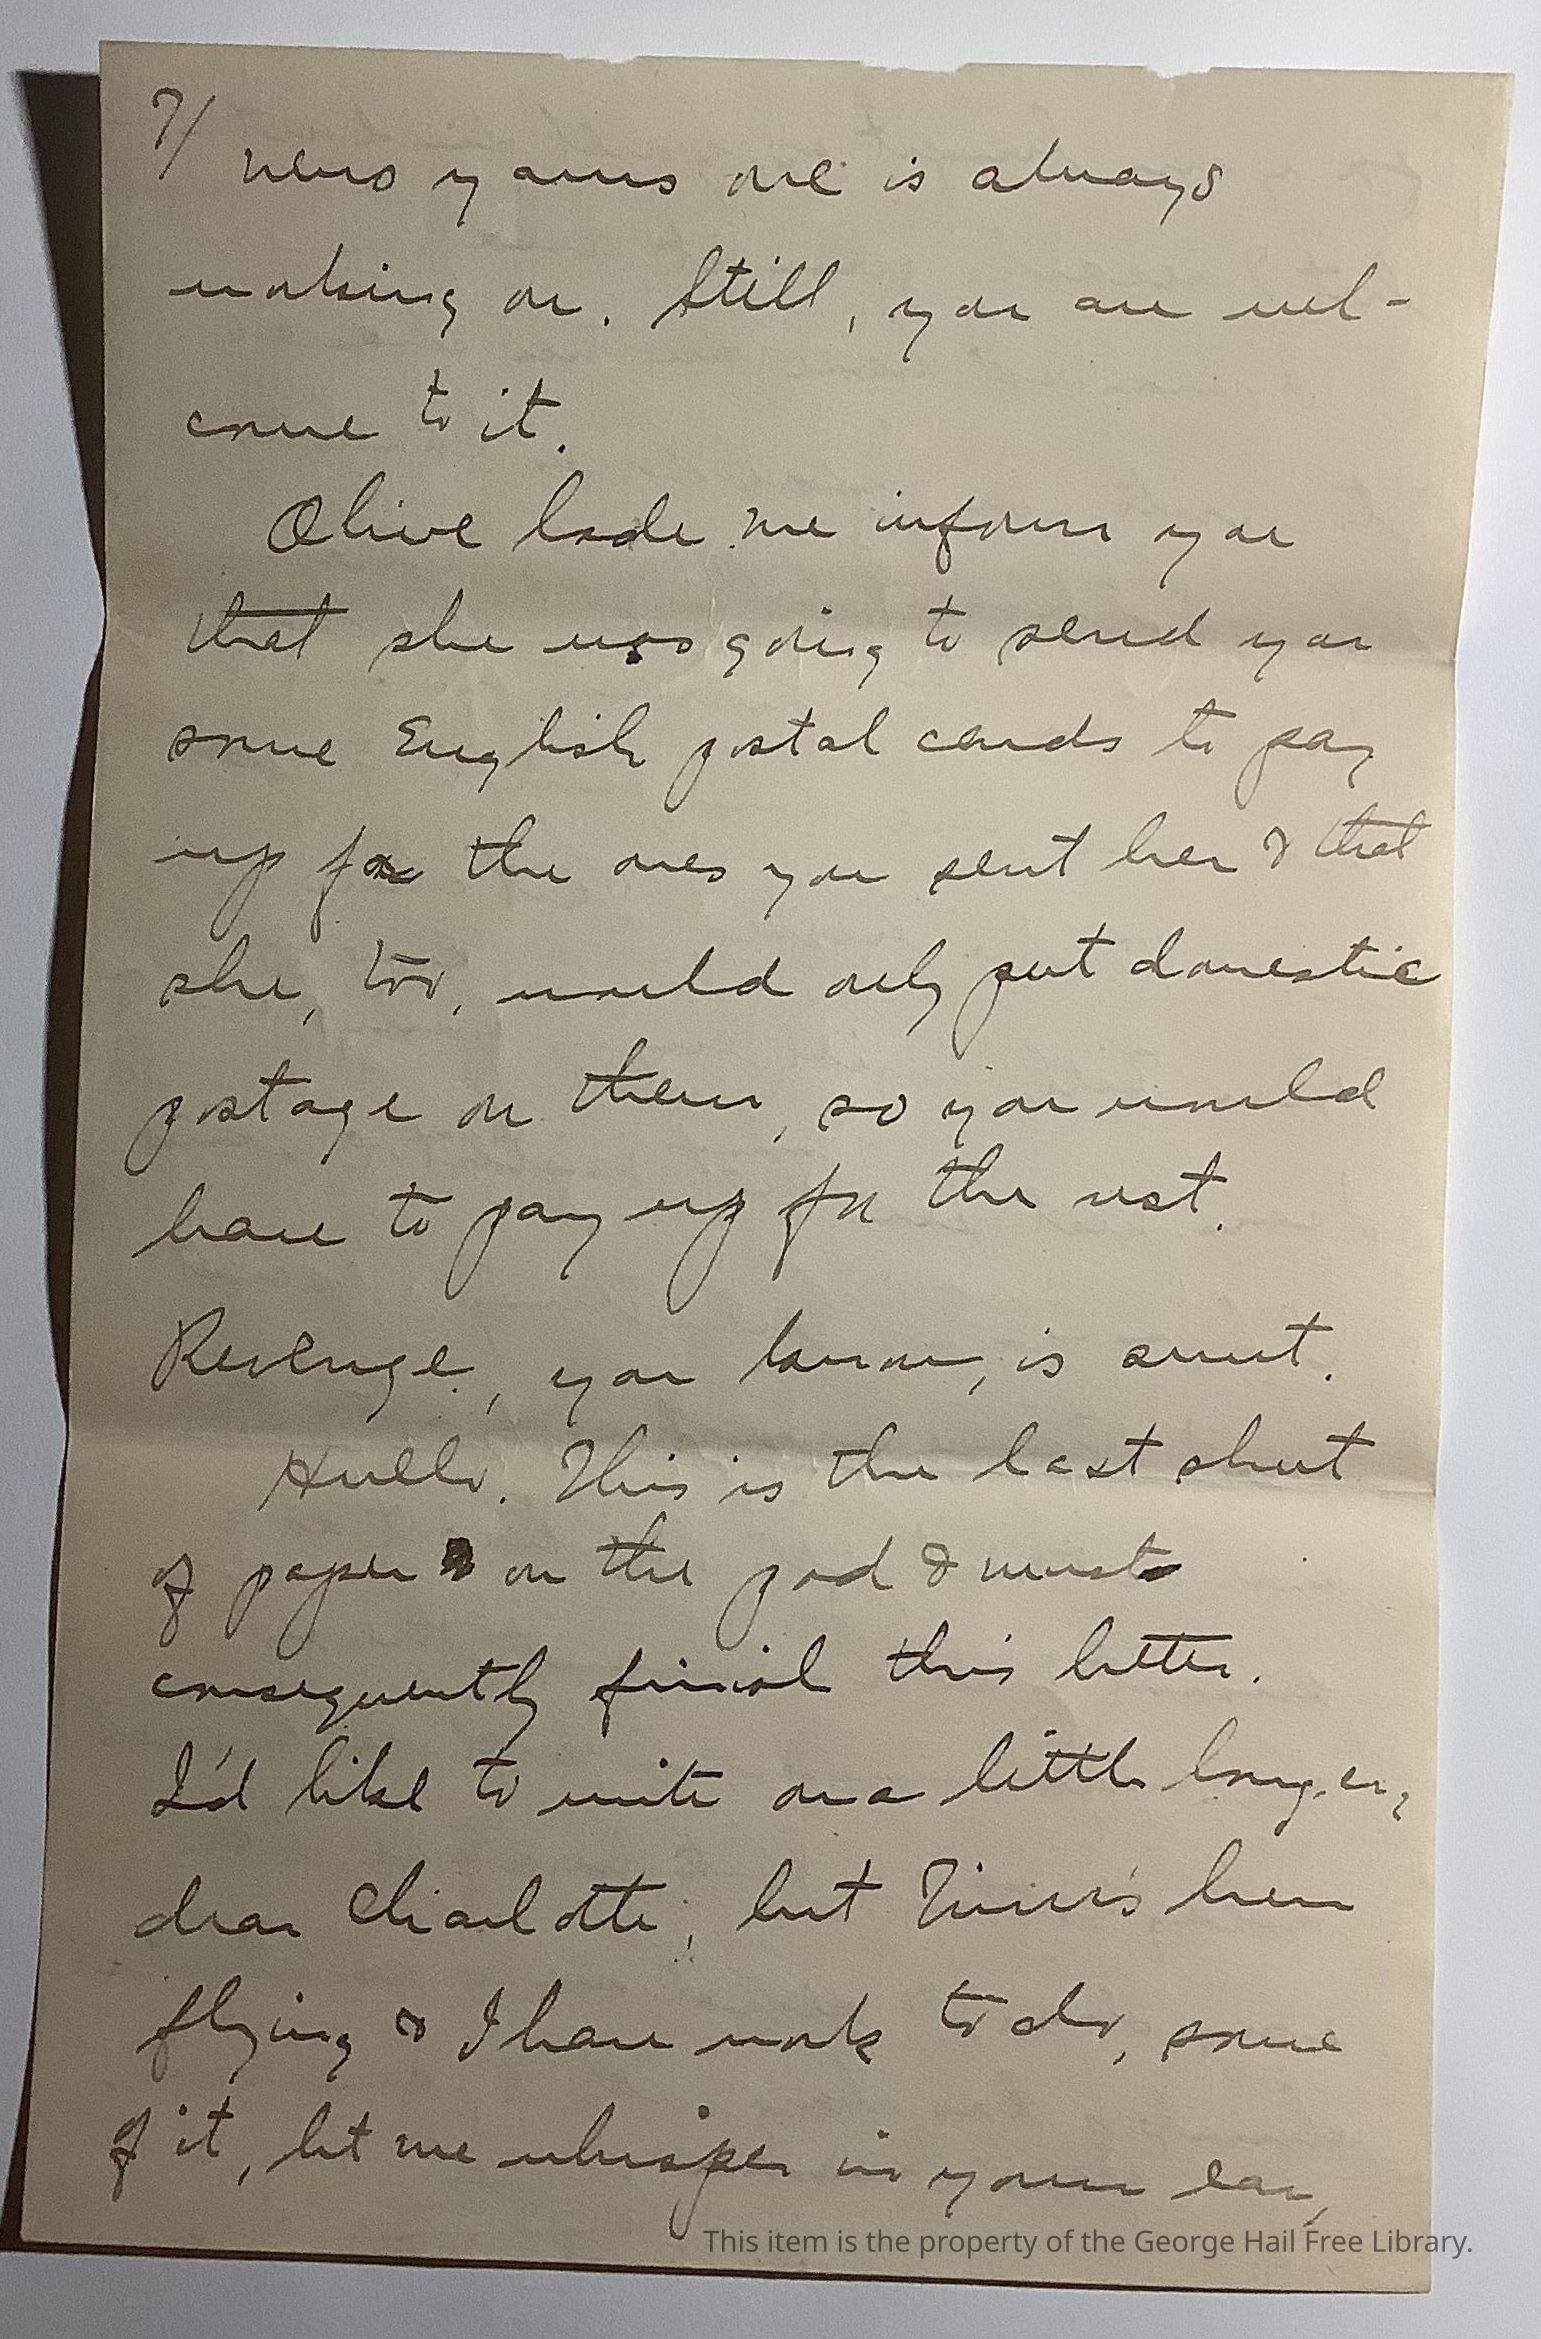 7/
news yours one is always
working on. Still, you are wel-
come to it.
Olive bade me inform you
that she was going to send you
some English postal cards to pay
up for the ones you sent her & that
she, too, would only put domestic
postage on them, so you would
have to pay up for the rest.
Revenge, you know, is sweet.
Hullo. This is the last sheet
of paper on the pad & must
consequently finish this letter.
I'd like to write on a little longer,
dear Charlotte, but Time's been
flying & I have work to do, some
of it, let me whisper in your ear,
This item is the property of the George Hail Free Library.